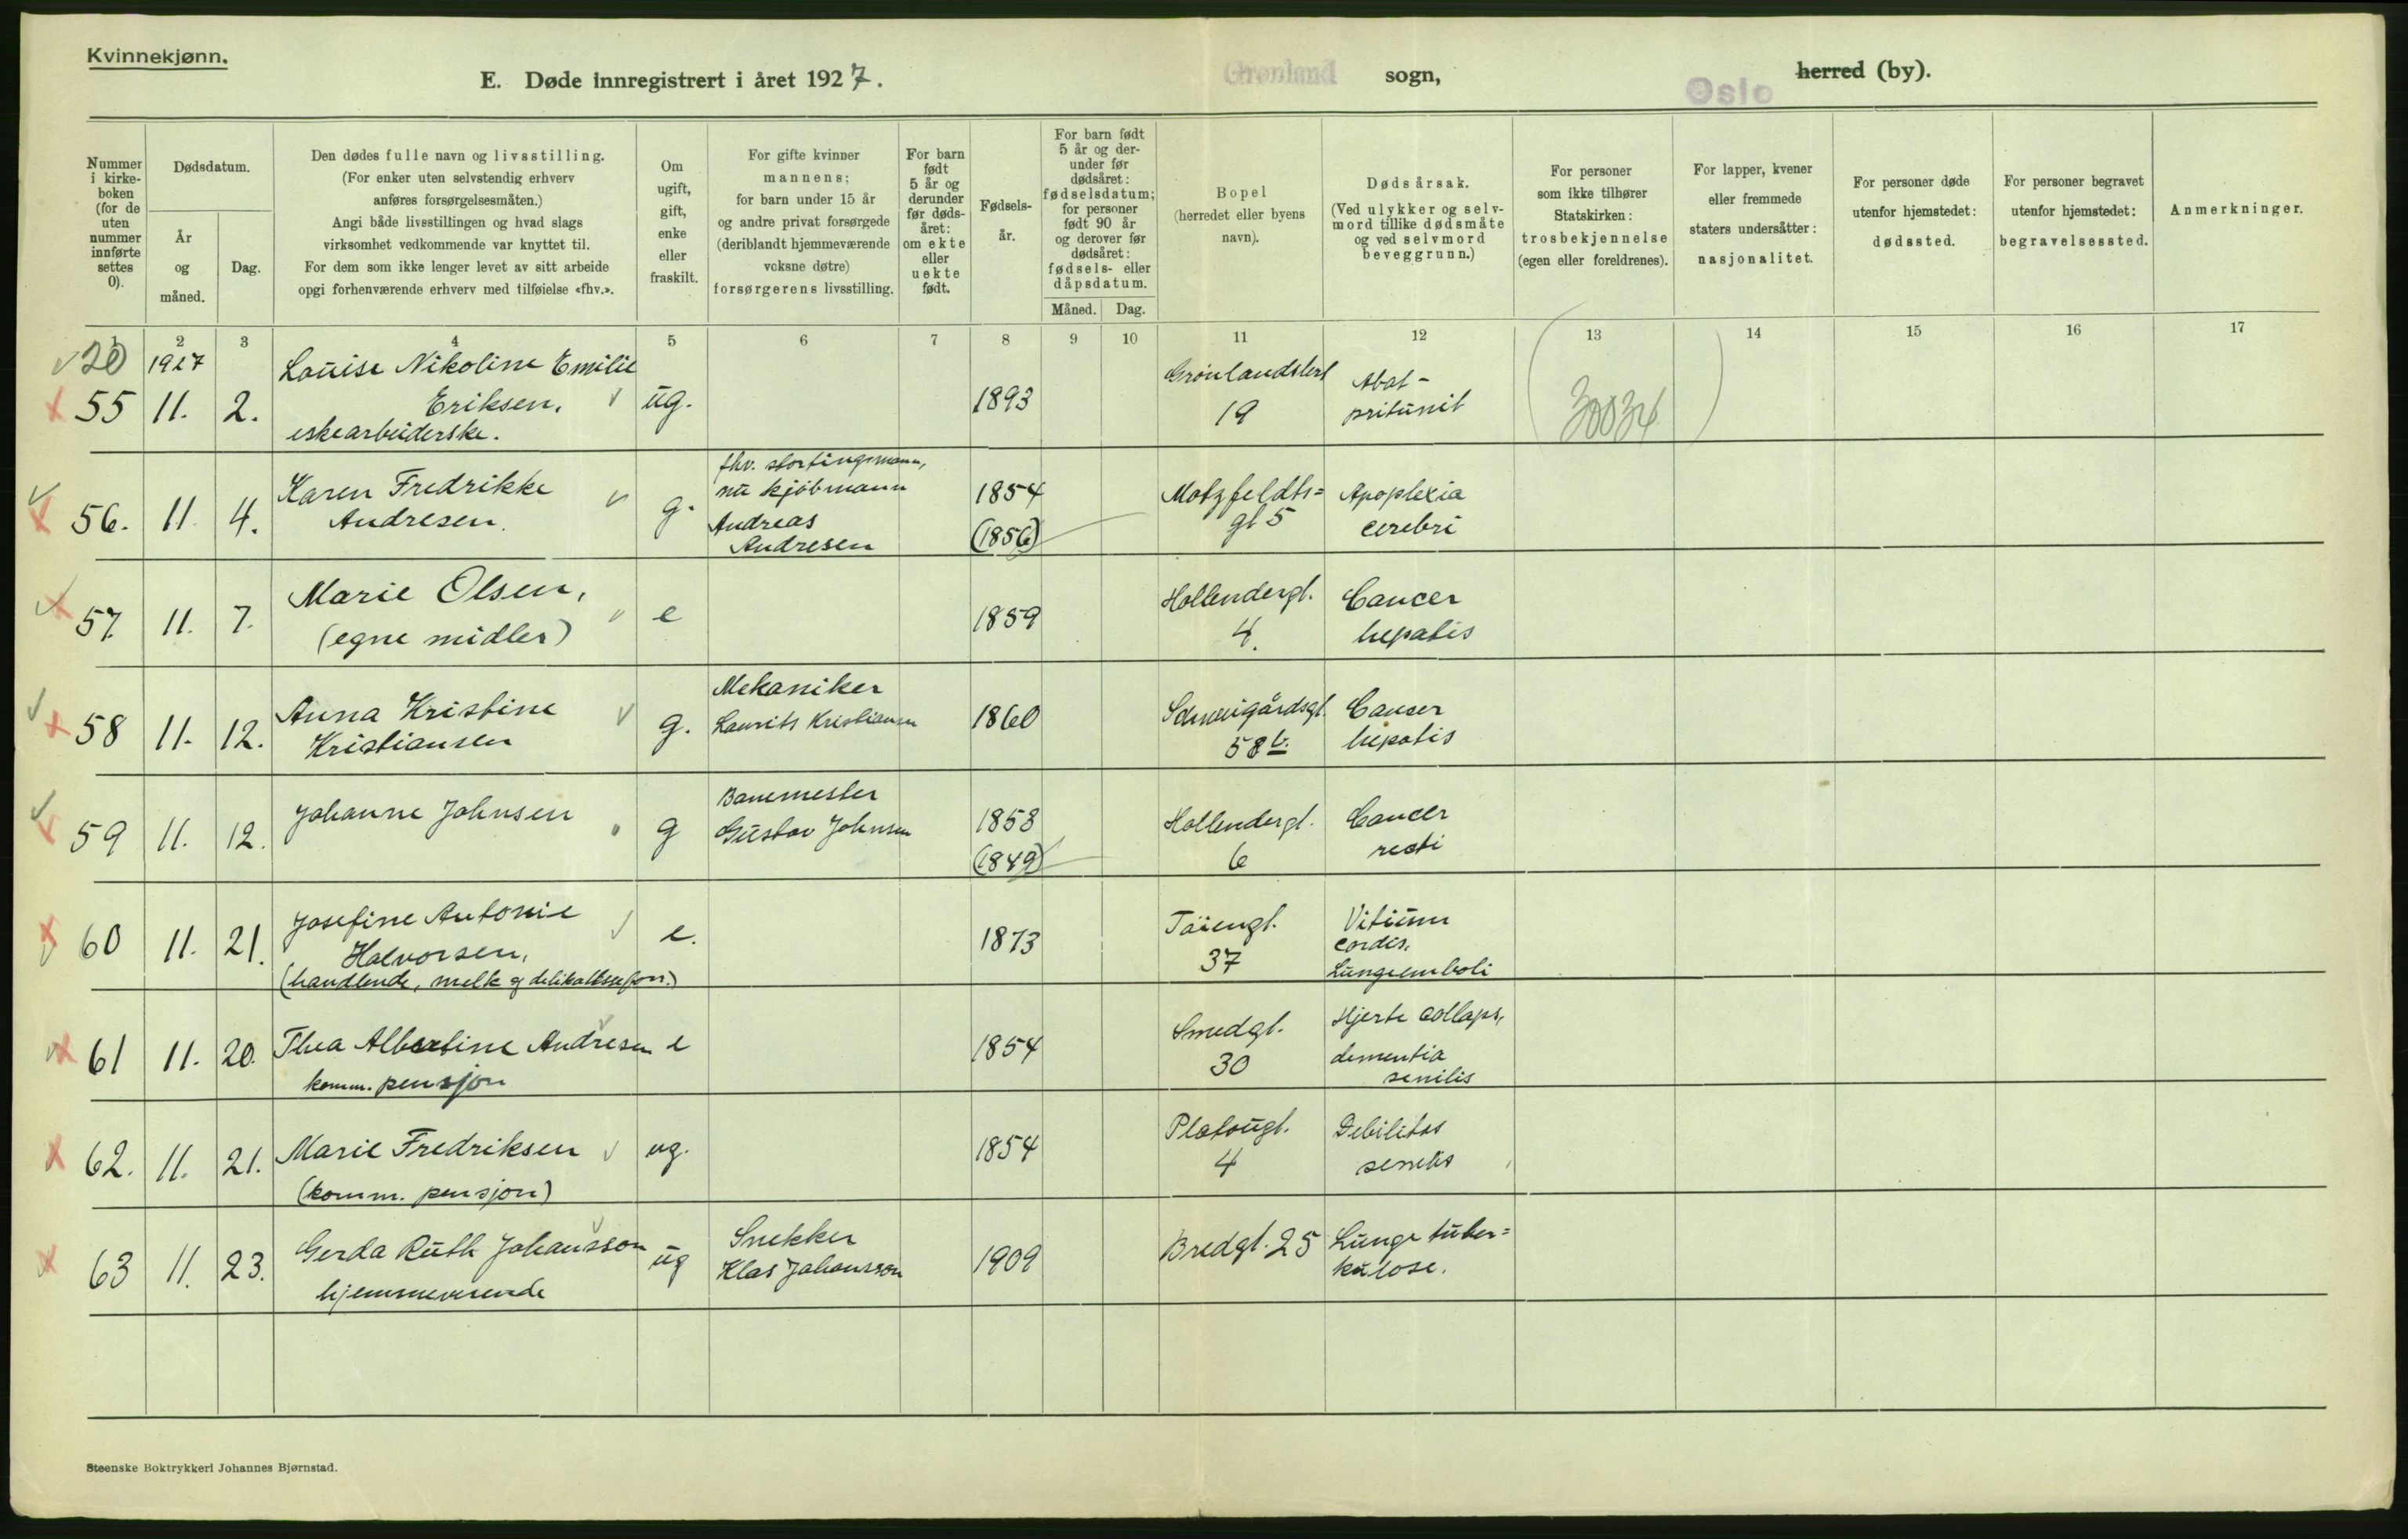 Kvinnekjønn.
E. Døde innregistrert i året 1927.
Grønland sogn,
Oslo herred (by).
Nummer i kirkeboken (for de uten nummer innførte settes 0).
Dødsdatum.
År og måned.
Dag.
Den dødes fulle navn og livsstilling.
(For enker uten selvstendig erhverv
anføres forsørgelsesmåten.)
Angi både livsstillingen og hvad slags
virksomhet vedkommende var knyttet til.
For dem som ikke lenger levet av sitt arbeide
opgi forhenværende erhverv med tilføielse «fhv.».
Om ugift, gift, enke eller fraskilt.
For gifte kvinner
mannens;
for barn under 15 år
og andre privat forsørgede
(deriblandt hjemmeværende
voksne døtre)
forsørgerens livsstilling.
For barn født 5 år og derunder før dødsåret: om ekte eller uekte født.
Fødselsår.
For barn født 5 år og derunder før dødsåret: fødselsdatum; for personer født 90 år og derover før dødsåret: fødsels- eller dåpsdatum.
Måned. Dag.
Bopel
(herredet eller byens
navn).
Dødsårsak.
(Ved ulykker og selvmord tillike dødsmåte
og ved selvmord
beveggrunn.)
For personer
som ikke tilhører
Statskirken:
trosbekjennelse
(egen eller foreldrenes).
For lapper, kvener
eller fremmede
staters undersåtter:
nasjonalitet.
For personer døde
utenfor hjemstedet:
dødssted.
For personer begravet
utenfor hjemstedet:
begravelsessted.
Anmerkninger.
1 2 3 4 5 6 7 8 9 10 11 12 13 14 15 16 17
20 1927 Louise Nikoline Emilie Grønlandsleret Abat-
55 11. 2. Eriksen, ug. 1893 19 pritunit
eskearbeiderske.
fhv. stortingsmann,
56. 11 4. Karen Fredrikke g. nu kjøbmann 1854 Motzfeldts= Apoplexia
Andresen. Andreas (1856) gt 5 cerebri
Andresen
57. 11. 7. Marie Olsen, e 1859 Hollendergt. Cancer
(egne midler) 4. hepatis
Mekaniker
58 11. 12. Anna Kristine g. Laurits Kristiansen 1860 Schweigårdsgt. Cancer
Kristiansen 58b. hepatis
Banemester
59 11. 12. Johanne Johnsen g Gustav Johnsen 1858 Hollendergt. Cancer
(1849) 6 recti
60 11. 21. Josefine Antonie e. 1873 Tøiengt. Vitium
Halvorsen, 37 cordis,
(handlende, melk og delikatesseforr.) Lungeemboli
61 11. 20. Thea Albertine Andresen e 1854 Smedgt. Hjerte collaps,
komm. pensjon 30 dementia
senilis
62. 11. 21. Marie Fredriksen ug. 1854 Platougt. Debilitas
(komm. pensjon) 4 senilis
63 11. 23. Gerda Ruth Johansson ug Snekker 1909 Bredgt. 25 Lunge tuber=
hjemmeværende Klas Johansson kulose.
Steenske Boktrykkeri Johannes Bjørnstad.